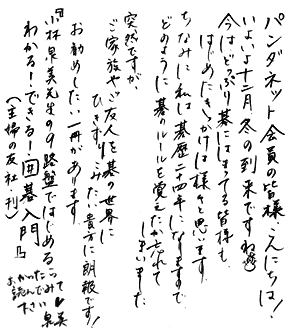 パンダネット会員の皆様こんにちは!
いよいよ十二月 冬の到来ですね
今はどっぷり碁にはまってる皆様も
はじめたきっかけは様々と思います。
ちなみに私は碁歴二十四年になりますので
どのように碁のルールを覚えたか忘れて
しまいました
突然ですが、
ご家族やご友人を碁の世界に
ひきずりこみたい貴方に朗報です!
お勧めしたい一冊があります
『小林泉美先生の9路盤ではじめる
わかる!できる!囲碁入門』
(主婦の友社刊)
よかったら
読んでみて
下さい
泉美